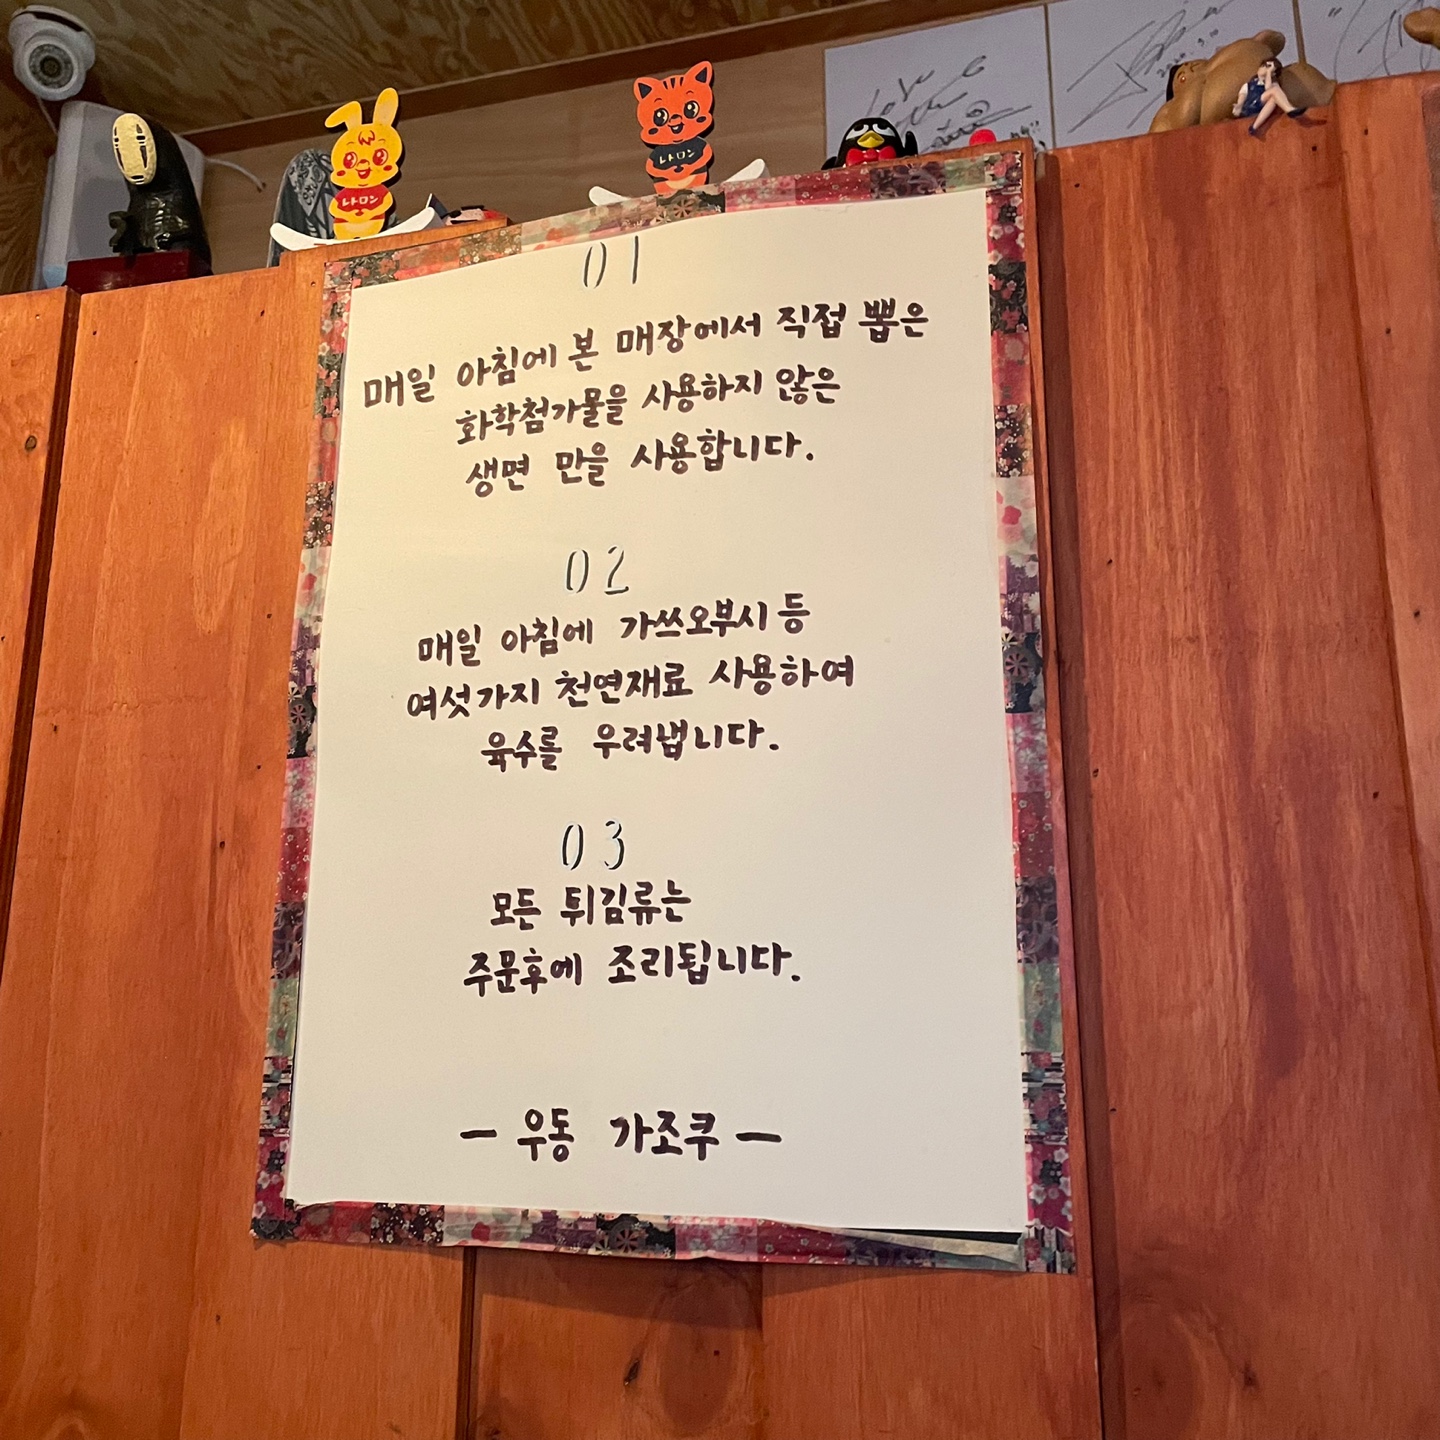 レトロン
レトロン
Love
01
매일 아침에 본 매장에서 직접 뽑은
화학첨가물을 사용하지 않은
생면 만을 사용합니다.
02
매일 아침에 가쓰오부시 등
여섯가지 천연재료 사용하여
육수를 우려냅니다.
03
모든 튀김류는
주문후에 조리됩니다.
— 우동 가조쿠 —